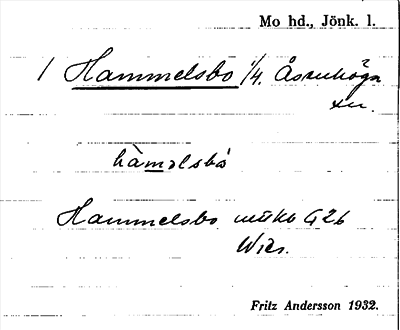 Mo hd., Jönk. l.
1 Hammelsbo 1/4. Åsenhöga
sn.
hàməlsbó
Hammelsbo mtlkb G26
Wies.
Fritz Andersson 1932.